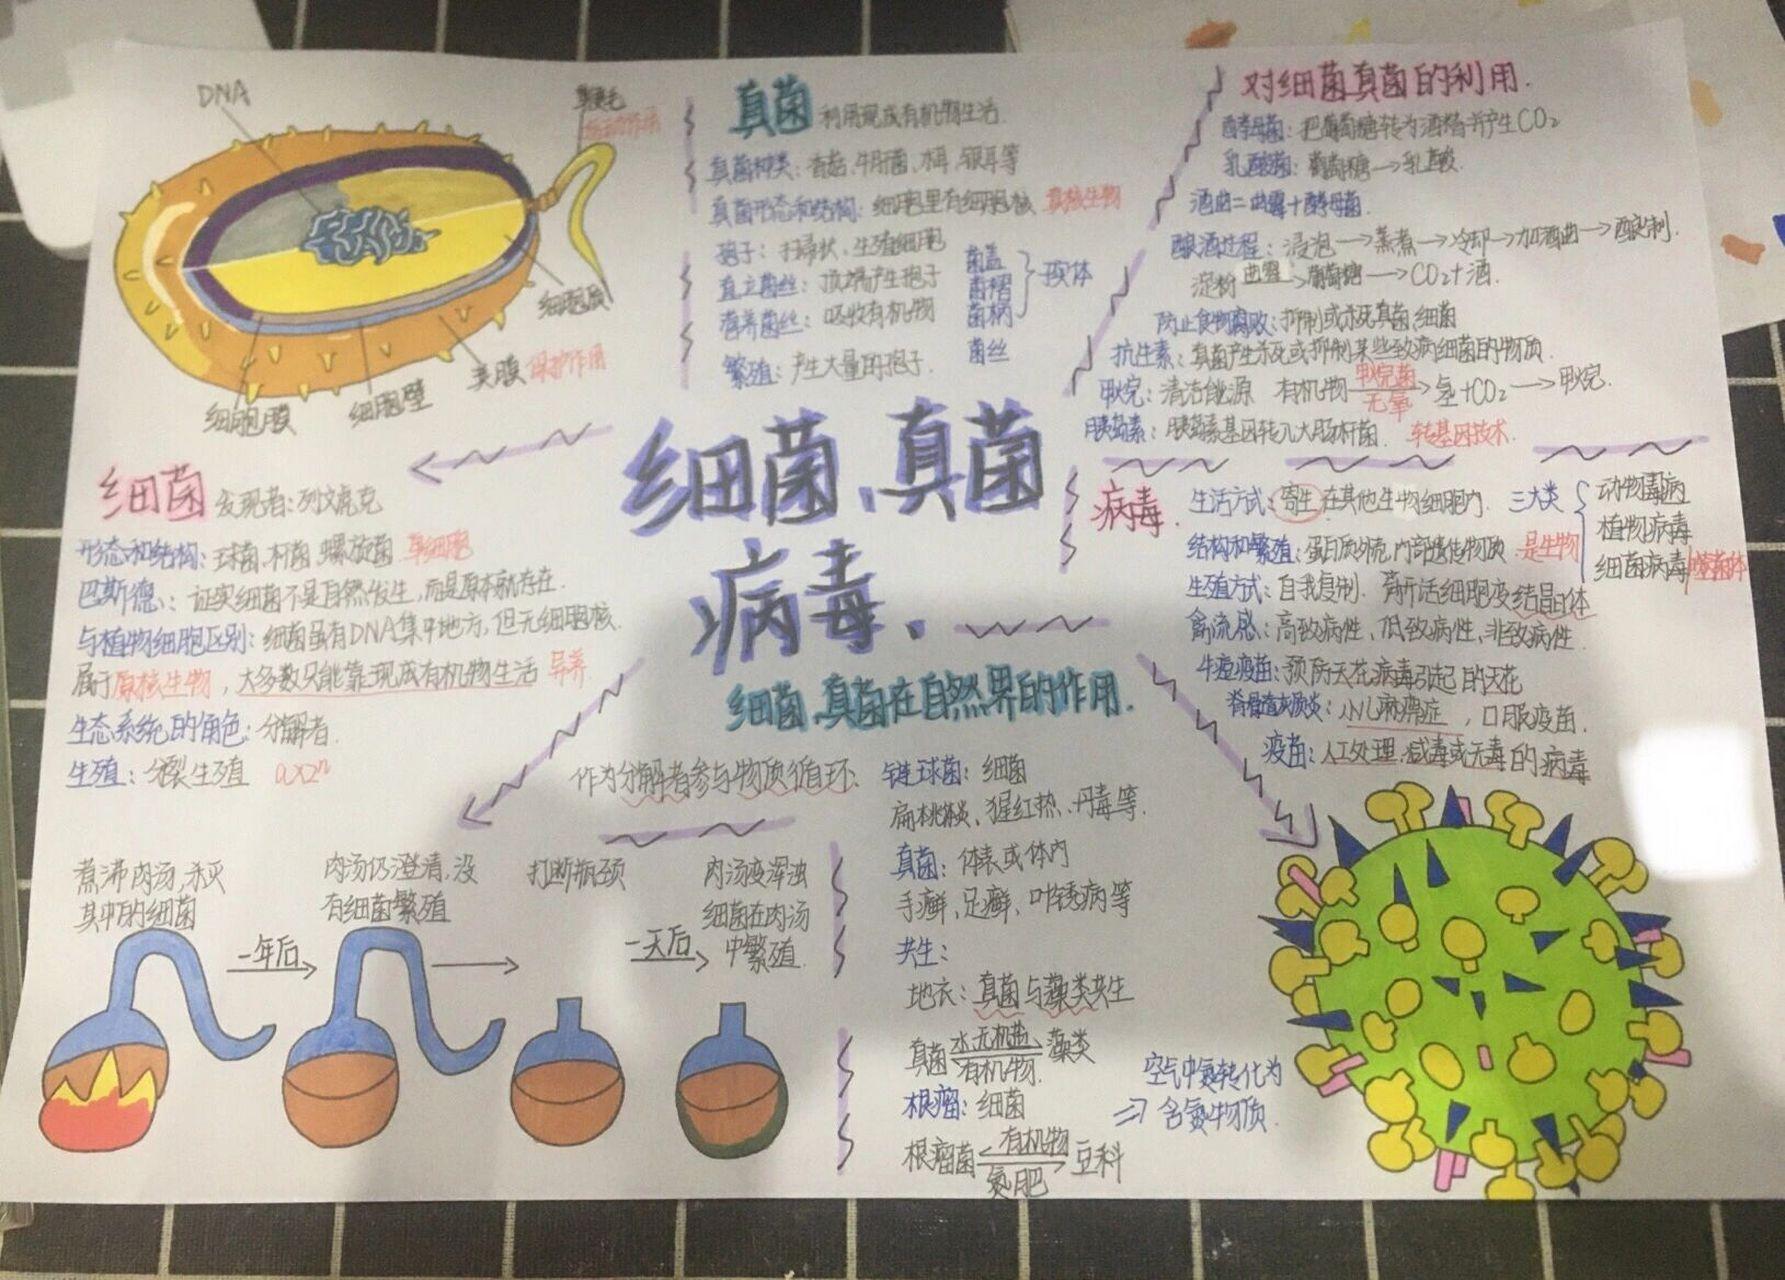 细菌、真菌
病毒、
DNA
鞭毛
运动作用
细胞质
荚膜 保护作用
细胞壁
细胞膜
细菌 发现者:列文虎克
形态和结构:球菌、杆菌、螺旋菌 单细胞
巴斯德:证实细菌不是自然发生,而是原本就存在.
与植物细胞区别:细菌虽有DNA集中地方,但无细胞核.
属于原核生物,大多数只能靠现成有机物生活 异养
生态系统的角色:分解者.
生殖:分裂生殖 a×2ⁿ
真菌 利用现成有机物生活.
真菌种类:香菇、牛肝菌、木耳、银耳等
真菌形态和结构:细胞里有细胞核 真核生物
孢子:扫帚状、生殖细胞
直立菌丝:顶端产生孢子
营养菌丝:吸收有机物
繁殖:产生大量的孢子.
菌盖
菌褶
菌柄
子实体
菌丝
对细菌真菌的利用.
酵母菌:把葡萄糖转为酒精并产生CO₂
乳酸菌:葡萄糖→乳酸.
酒曲=曲霉+酵母菌.
酿酒过程:浸泡→蒸煮→冷却→加酒曲→酿制.
淀粉 曲霉→葡萄糖→CO₂+酒.
防止食物腐败:抑制或杀死真菌、细菌
抗生素:真菌产生杀死或抑制某些致病细菌的物质.
甲烷:清洁能源 有机物 甲烷菌 无氧→氢+CO₂→甲烷.
胰岛素:胰岛素基因转入大肠杆菌. 转基因技术.
病毒. 生活方式:寄生在其他生物细胞内.
三大类
动物病毒
植物病毒
细菌病毒 噬菌体
结构和繁殖:蛋白质外壳,内部遗传物质 是生物
生殖方式:自我复制. 离开活细胞变结晶体
禽流感:高致病性、低致病性、非致病性.
牛痘疫苗:预防天花病毒引起的天花
脊骨道灰质炎:小儿麻痹症,口服疫苗.
疫苗:人工处理.减毒或无毒的病毒
细菌、真菌在自然界的作用.
作为分解者参与物质循环.
链球菌:细菌
扁桃体炎、猩红热、丹毒等.
真菌:体表或体内
手癣、足癣、叶锈病等
共生:
地衣:真菌与藻类共生
真菌 水、无机盐 有机物. 藻类
根瘤:细菌
根瘤菌 有机物 氮肥 豆科
空气中氮转化为
⇒含氮物质.
煮沸肉汤,杀灭
其中的细菌
一年后
肉汤仍澄清,没
有细菌繁殖
打断瓶颈
一天后
肉汤变浑浊
细菌在肉汤
中繁殖.